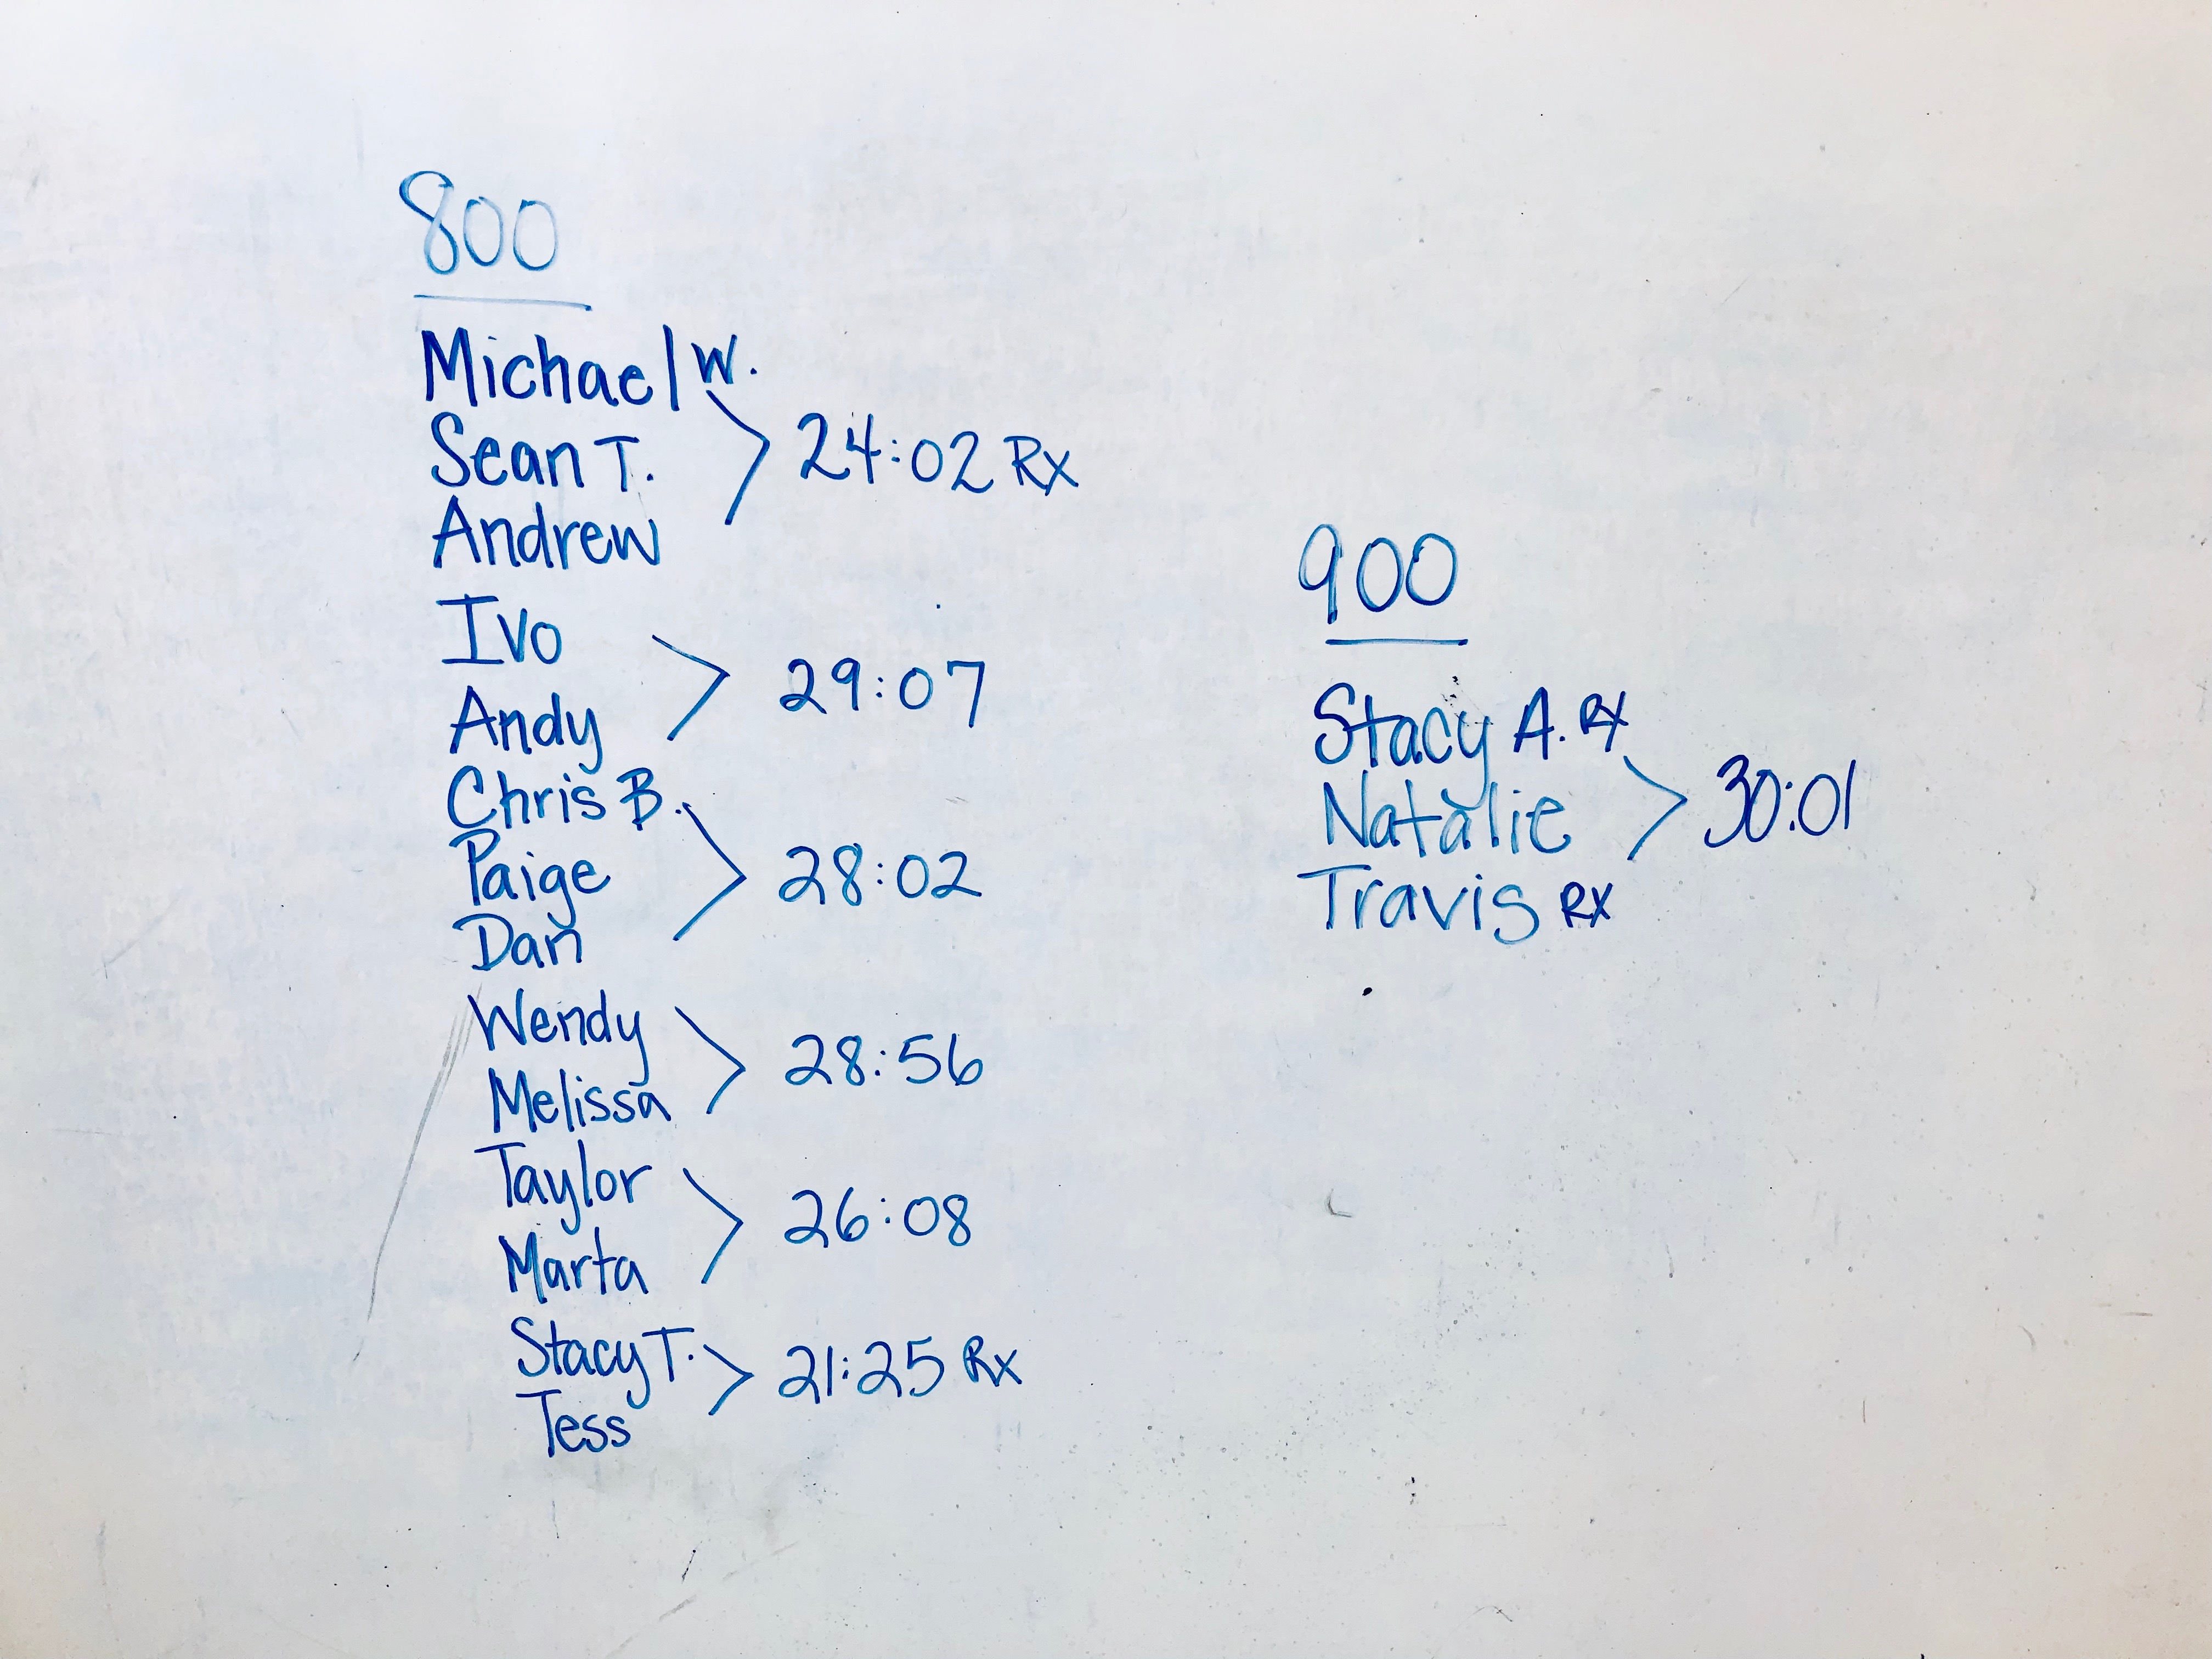 800
Michael W.
Sean T.
24:02 Rx
Andrew
Ivo
29:07
Andy
Chris B.
Paige
28:02
Dan
Wendy
28:56
Melissa
Taylor
26:08
Marta
Stacy T.
21:25 Rx
Tess
900
Stacy A. RX
Natalie
30:01
Travis RX